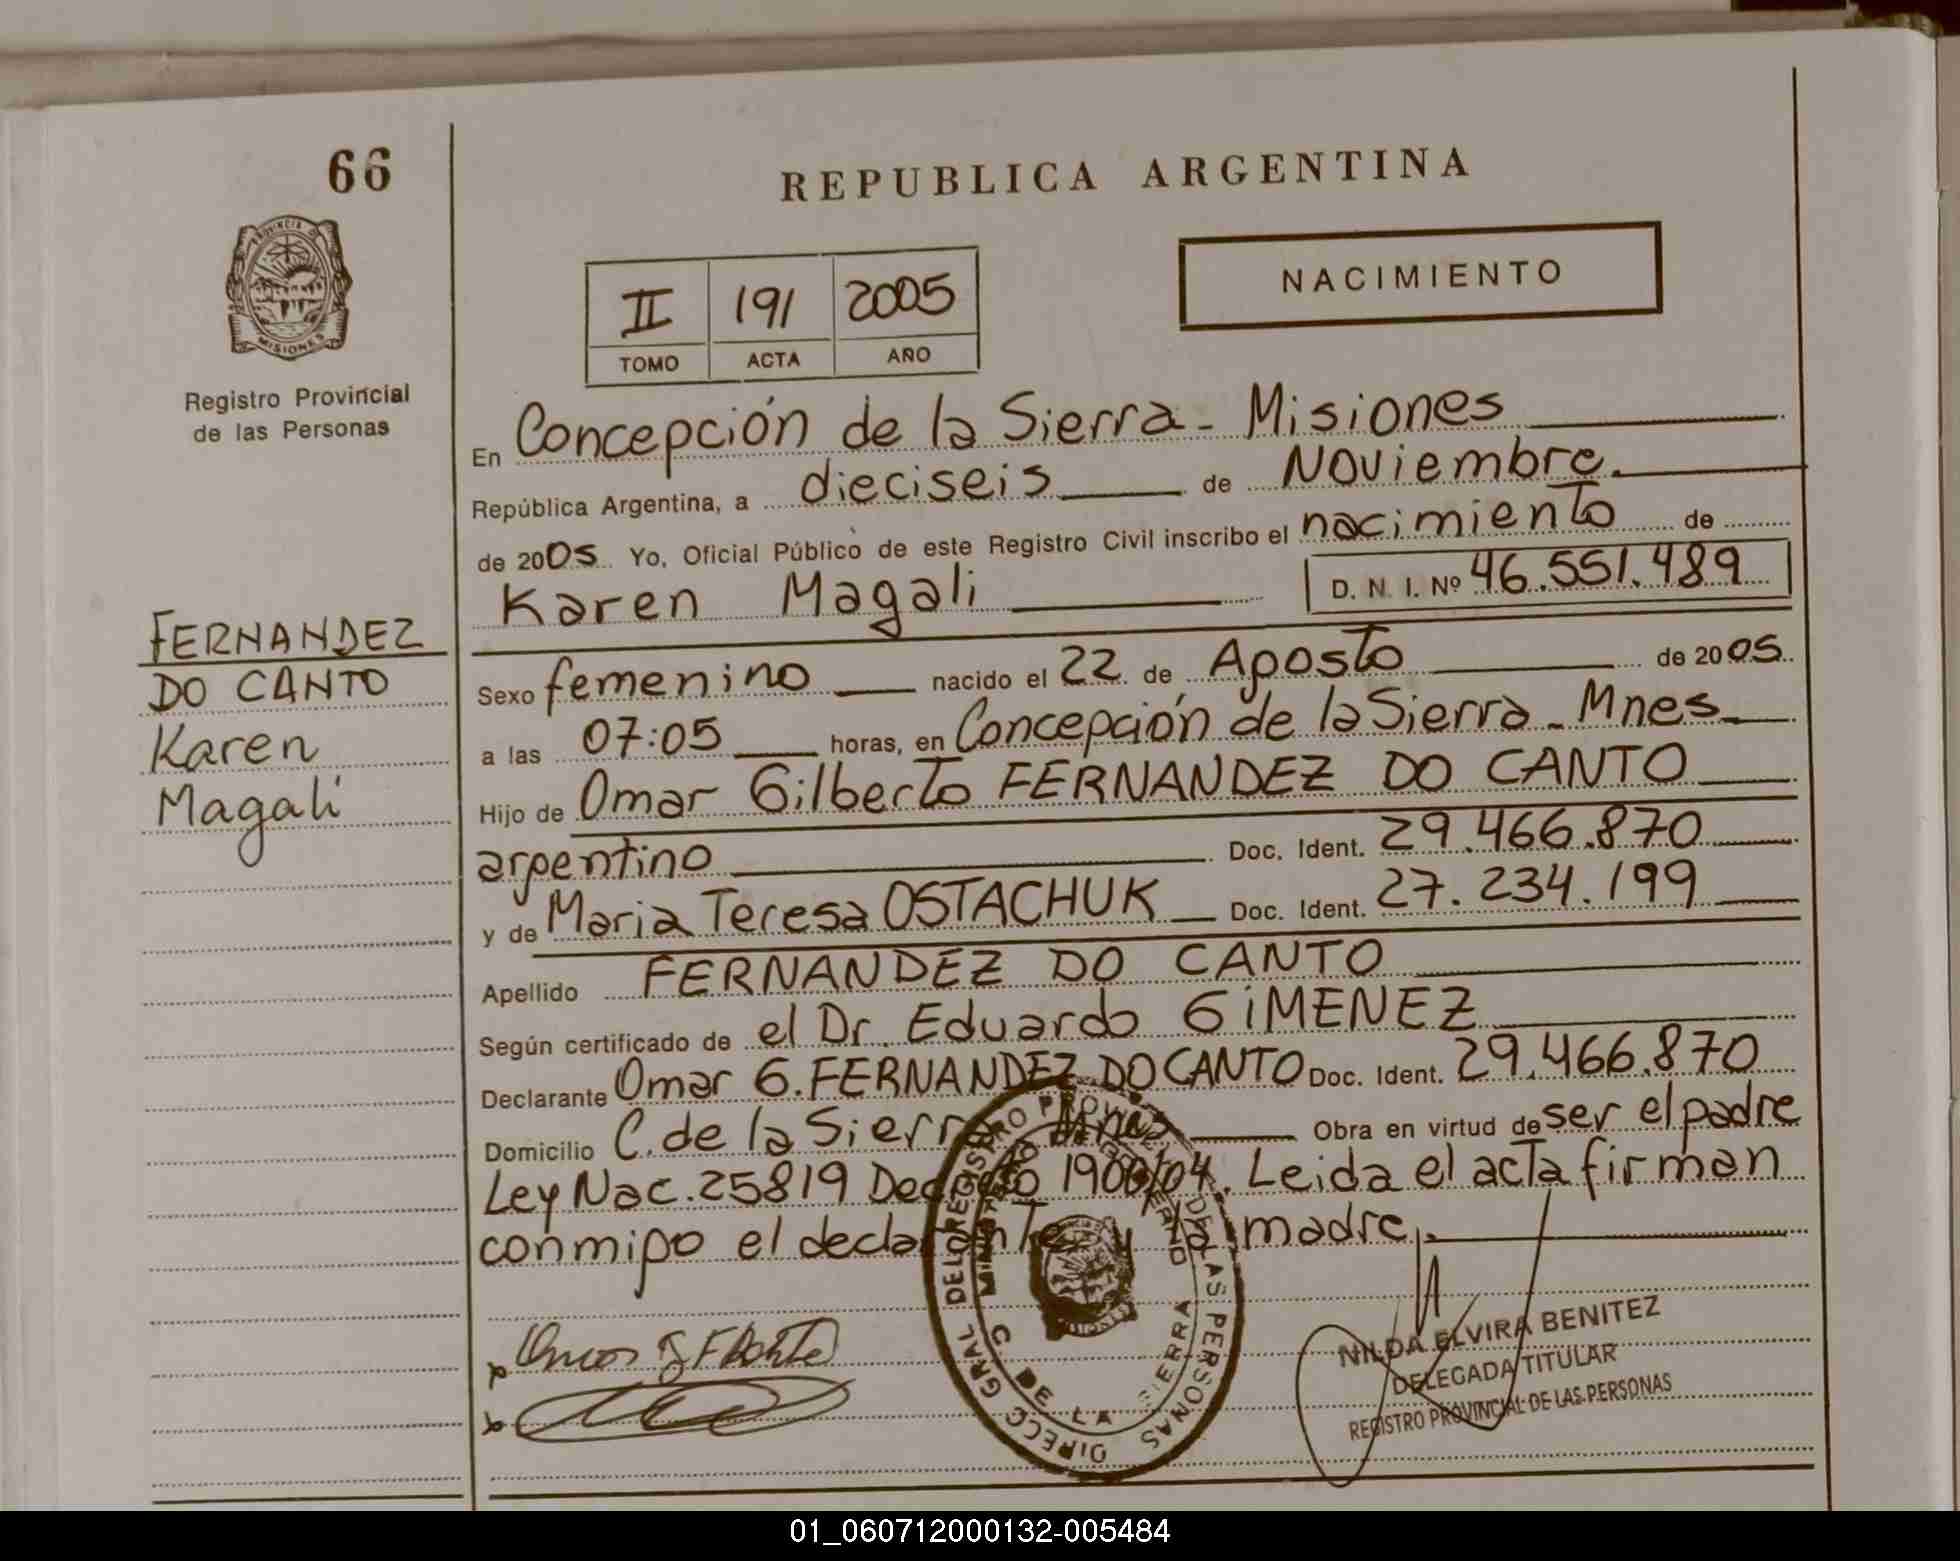 66
REPUBLICA ARGENTINA
PROVINCIA D
MISIONES
Registro Provincial
de las Personas
II 191 2005
TOMO ACTA AÑO
NACIMIENTO
En Concepción de la Sierra - Misiones
República Argentina, a dieciseis de Noviembre.
de 2005 Yo, Oficial Público de este Registro Civil inscribo el nacimiento de
Karen Magali D. N. I. Nº 46.551.489
FERNANDEZ
DO CANTO
Karen
Magali
Sexo femenino nacido el 22 de Agosto de 2005
a las 07:05 horas, en Concepción de la Sierra - Mnes
Hijo de Omar Gilberto FERNANDEZ DO CANTO
argentino Doc. Ident. 29.466.870
y de Maria Teresa OSTACHUK Doc. Ident. 27.234.199
Apellido FERNANDEZ DO CANTO
Según certificado de el Dr. Eduardo GIMENEZ
Declarante Omar G. FERNANDEZ DO CANTO Doc. Ident. 29.466.870
Domicilio C. de la Sierra Mnes Obra en virtud de ser el padre
Ley Nac. 25819 Decreto 1900/04. Leida el acta firman
conmigo el declarante y la madre.
DIRECC GRAL DEL REGISTRO PROVINCIAL DE LAS PERSONAS
MINISTERIO DE GOBIERNO
C. DE LA SIERRA
NILDA ELVIRA BENITEZ
DELEGADA TITULAR
REGISTRO PROVINCIAL DE LAS PERSONAS
01_060712000132-005484